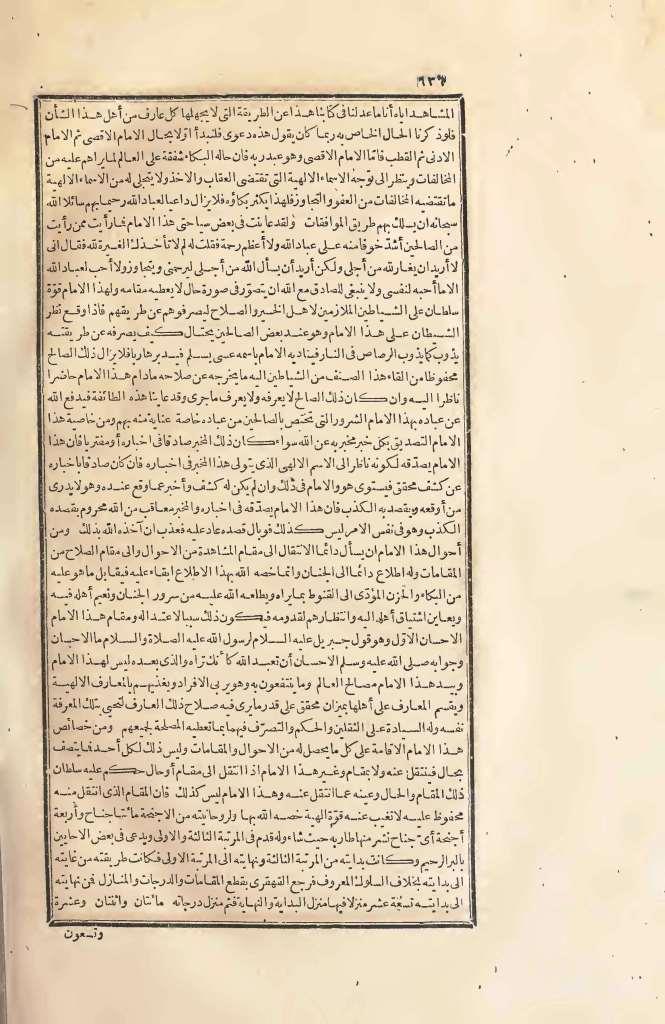 ٦٣٧
المشاهد اياه أنا ما عدلنا في كتابنا هذا عن الطريقة التي لا يجهلها كل عارف من أهل هذا الشأن
فلو ذكرنا الحال الخاص به ربما كان يقول هذه دعوى فلنبدأ أوّلا بحال الامام الاقصى ثم الامام
الادنى ثم القطب فامّا الامام الاقصى وهو عبد ربه فان حاله البكاء شفقة على العالم لما يراهم عليه من
المخالفات وينظر الى توجه الاسماء الالهية التي تقتضى العقاب والاخذ ولا يتجلى له من الاسماء الالهية
ما تقتضيه المخالفات من العفو والتجاوز فلهذا يكثر بكاؤه فلا يزال داعيا لعباد الله رحيما بهم سائلا الله
سبحانه ان يسلك بهم طريق الموافقات ولقد عاينت في بعض سياحتى هذا الامام فما رأيت ممن رأيت
من الصالحين أشدّ خوفا منه على عباد الله ولا أعظم رحمة فقلت له لم لا تأخذك الغيرة لله فقال انى
لا أريد ان يغار لله من أجلى ولكن أريد أن يسأل الله من أجلى ليرحمنى ويتجاوز ولا أحب لعباد الله
الا ما أحبه لنفسى ولا ينبغى للصادق مع الله ان يتصوّر في صورة حال لا يعطيه مقامه ولهذا الامام قوّة
سلطان على الشياطين الملازمين لاهل الخير والصلاح ليصرفوهم عن طريقهم فاذا وقع نظر
الشيطان على هذا الامام وهو عند بعض الصالحين يحتال كيف يصرفه عن طريقته
يذوب كما يذوب الرصاص في النار فيناديه الامام باسمه عسى يسلم فيدبر هاربا فلا يزال ذلك الصالح
محفوظا من القاء هذا الصنف من الشياطين اليه ما يخرجه عن صلاحه مادام هذا الامام حاضرا
ناظرا اليه وان كان ذلك الصالح لا يعرفه ولا يعرف ما جرى وقد عاينا هذه الطائفة فيدفع الله
عن عباده بهذا الامام الشرور التي تختص بالصالحين من عباده خاصة عناية منه بهم ومن خاصية هذا
الامام التصديق بكل خبر مخبر به عن الله سواء كان ذلك المخبر صادقا في اخباره أو مفتريا فان هذا
الامام يصدّقه لكونه ناظرا الى الاسم الالهى الذى يتولى هذا المخبر في اخباره فان كان صادقا باخباره
عن كشف محقق فيستوى هو والامام في ذلك وان لم يكن له كشف وأخبر عما وقع عنده وهو لا يدرى
من أوقعه ويقصد به الكذب فان هذا الامام يصدّقه في اخباره والمخبر معاقب من الله محروم بقصده
الكذب وهو في نفس الامر ليس كذلك فوبال قصده عاد عليه فعذب ان آخذه الله بذلك ومن
أحوال هذا الامام ان يسأل دائما الانتقال الى مقام المشاهدة من الاحوال والى مقام الصلاح من
المقامات وله اطلاع دائما الى الجنان وانما خصه الله بهذا الاطلاع ابقاء عليه فيقابل ما هو عليه
من البكاء والحزن المؤدّى الى القنوط بما يراه ويطلعه الله عليه من سرور الجنان ونعيم أهله فيه
ويعاين اشتياق أهله اليه وانتظارهم لقدومه فيكون ذلك سببا لاعتداله ومقام هذا الامام
الاحسان الاوّل وهو قول جبريل عليه السلام لرسول الله عليه الصلاة والسلام ما الاحسان
وجوابه صلى الله عليه وسلم الاحسان أن تعبد الله كأنك تراه والذى بعده ليس لهذا الامام
وبيد هذا الامام مصالح العالم وما ينتفعون به وهو يربى الافراد ويغذيهم بالمعارف الالهية
ويقسم المعارف على أهلها بميزان محقق على قدر ما يرى فيه صلاح ذلك العارف لتحيى بتلك المعرفة
نفسه وله السيادة على الثقلين والحكم والتصرّف فيهما بما تعطيه المصلحة لجميعهم ومن خصائص
هذا الامام الاقامة على كل ما يحصل له من الاحوال والمقامات وليس ذلك لكل أحد فما يتصف
بحال فينتقل عنه ولا بمقام وغير هذا الامام اذا انتقل الى مقام أو حال حكم عليه سلطان
ذلك المقام والحال وعينه عما انتقل عنه وهذا الامام ليس كذلك فان المقام الذى انتقل منه
محفوظ عليه لا تغيب عنه قوّة الهية خصه الله بها ولروحانيته من الاجنحة مائتا جناح وأربعة
أجنحة أىّ جناح نشر منها طار به حيث شاء وله قدم في المرتبة الثالثة والاولى ويدعى في بعض الاحايين
بالبر الرحيم وكانت بدايته من المرتبة الثالثة ونهايته الى المرتبة الاولى فكانت طريقته من غايته
الى بدايته بخلاف السلوك المعروف فرجع القهقرى يقطع المقامات والدرجات والمنازل فمن نهايته
الى بدايته تسعة عشر منزلا فيها منزل البداية والنهاية فثم منزل درجاته مائتان واثنتان وعشرة
وتسعون